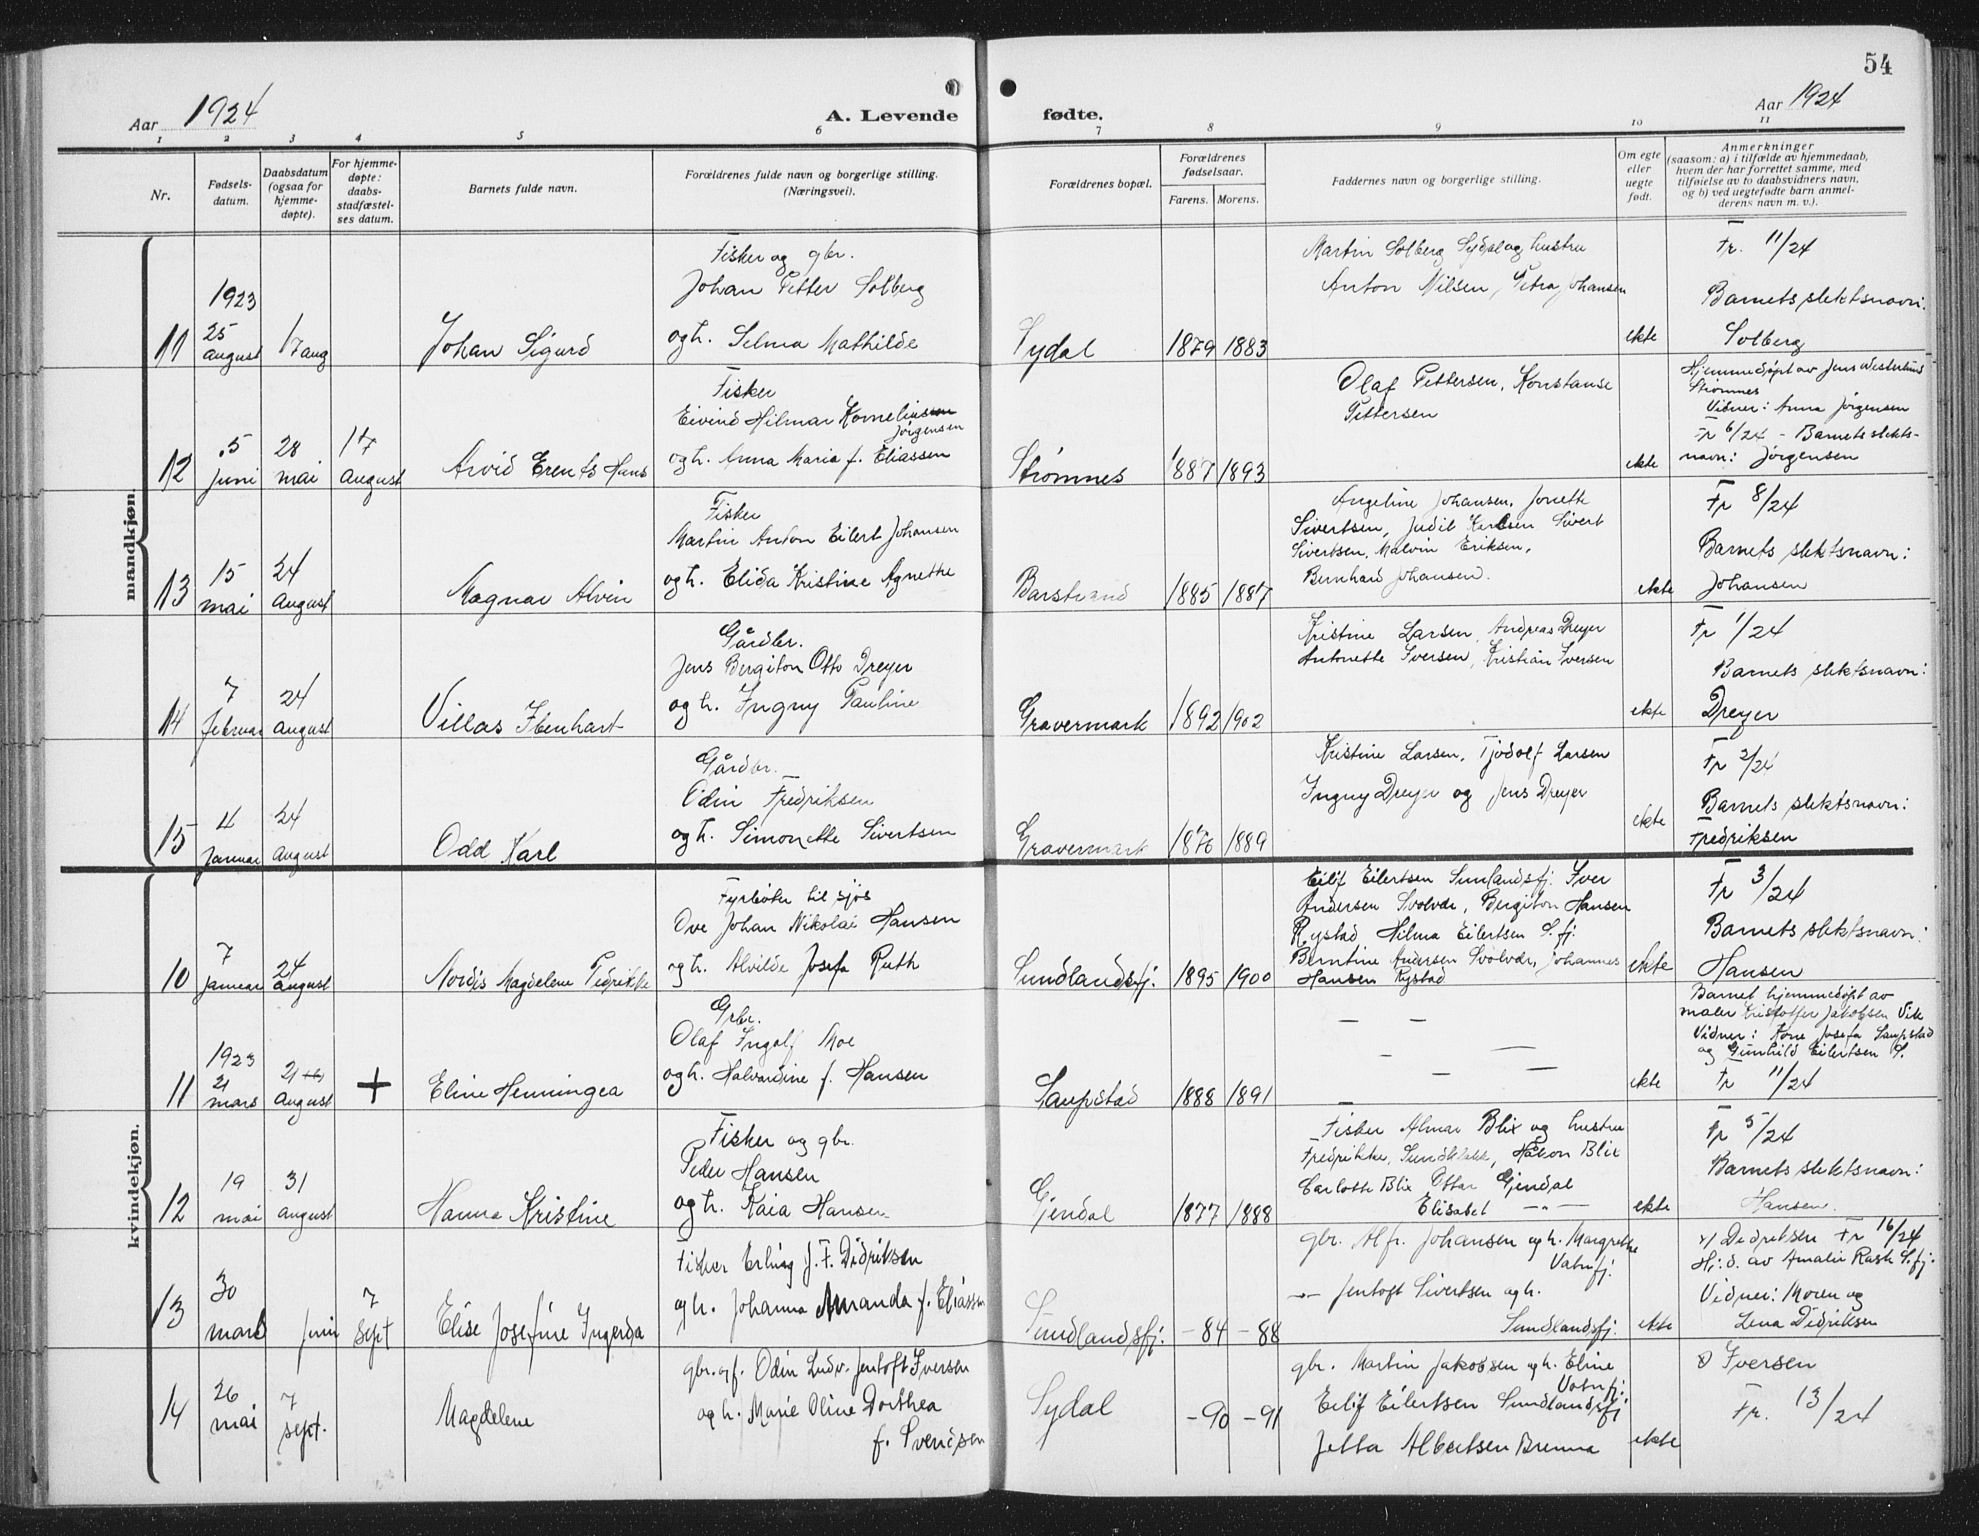 54
Aar 1924
A. Levende fødte.
Aar 1924
1 2 3 4 5 6 7 8 9 10 11
Nr.
Fødsels-
datum.
Daabsdatum
(ogsaa for
hjemme-
døpte).
For hjemme-
døpte:
daabs-
stadfæstel-
ses datum.
Barnets fulde navn.
Forældrenes fulde navn og borgerlige stilling.
(Næringsvei).
Forældrenes bopæl.
Forældrenes
fødselsaar.
Farens. Morens.
Faddernes navn og borgerlige stilling.
Om egte
eller
uegte
født.
Anmerkninger
(saasom: a) i tilfælde av hjemmedaab,
hvem der har forrettet samme, med
tilføielse av to daabsvidners navn,
og b) ved uegtefødte barn anmel-
derens navn m. v.).
mandkjøn.
11
1923
25
august
17 aug
Johan Sigurd
Fisker og gbr.
Johan Petter Solberg
og h. Selma Mathilde
Sydal
1879 1883
Martin Solberg Sydal og hustru
Anton Nilsen, Petra Johansen
ekte
Fr. 11/24
Barnets slektsnavn:
Solberg
12
5
juni
28
mai
17
august
Arvid Erents Hans
Fisker
Eivind Hilmar Korneliussen
Jørgensen
og h. Anna Maria f. Eliassen
Strømnes
1887 1893
Olaf Pettersen, Konstanse
Pettersen
ekte
Hjemmedøpt av Jens
Strømnes
Vidner: Anna Jørgensen
Fr 6/24 - Barnets slekts-
navn: Jørgensen
13
15
mai
24
august
Magnar Alvin
Fisker
Martin Anton Eilert Johansen
og h. Elida Kristine Agnethe
Barstrand
1885 1887
Angeline Johansen, Jonette
Sivertsen, Judit Karlsen Sivert
Sivertsen, Malvin Eriksen,
Bernhard Johansen.
ekte
Fr 8/24
Barnets slektsnavn:
Johansen
14
7
februar
24
august
Villas Ibenhart
Gårdbr.
Jens Bergiton Otto Dreyer
og h. Ingny Pauline
Gravermark
1892 1902
Kristine Larsen, Andreas Dreyer
Antonette Iversen, Kristian Iversen
ekte
Fr 1/24
Barnets slektsnavn:
Dreyer
15
4
januar
24
august
Odd Karl
Gårdbr.
Odin Fredriksen
og h. Simonette Sivertsen
Gravermark
1876 1889
Kristine Larsen, Tjodolf Larsen
Ingny Dreyer og Jens Dreyer
ekte
Fr 2/24
Barnets slektsnavn:
Fredriksen
kvindekjøn.
10
7
januar
24
august
Nordis Magdelene Pedrikke
Fyrbøter til sjøs
Ove Johan Nikolai Hansen
og h. Alvilde Josefa Ruth
Sundlandsfj.
1895 1900
Eilif Eilertsen Sundlandsfj. Iver
Andersen Svolvær, Bergiton Hansen
Rystad Hilma Eilertsen S.fj.
Berntine Andersen Svolvær, Johannes
Hansen Rystad
ekte
Fr 3/24
Barnets slektsnavn:
Hansen
11
1923
21
mars
21
august
+
Eline Henningea
Grbr.
Olaf Ingolf Moe
og h. Halvardine f. Hansen
Saupstad
1888 1891
— — —
— —
— —
ekte
Barnet hjemmedøpt av
maler Kristoffer Jakobsen Vik
Vidner: Kone Josefa Saupstad
og Gunhild Eilertsen S.
Fr 11/24
12
19
mai
31
august
Hanna Kristine
Fisker og gbr.
Peder Hansen
og h. Kaia Hansen
Gjendal
1877 1888
Fisker Almar Blix og hustru
Fredrikke, Håkon Blix
Carlotte Blix Ottar Gjendal
Elisabet —"—
ekte
Fr 5/24
Barnets slektsnavn:
Hansen.
13
30
mars
juni
7
sept
Elise Josefine Ingerda
Fisker Erling J. F. Didriksen
og h. Johanna Amanda f. Eliassen
Sundlandsfj.
- 84 - 88
gbr. Alfr. Johansen og h. Margrethe
Vatnfj.
—"— Jentoft Sivertsen og h.
Sundlandsfj.
ekte
Didriksen Fr 16/24
Hj. d. av Amalie Rask S.fj.
Vidner: Moren og
Lena Didriksen
14
26
mai
7
sept.
Magdelene
gbr. og f. Odin Ludv. Jentoft Iversen
og h. Marie Oline Dorthea
f. Svendsen
Sydal
- 90 - 91
gbr. Martin Jakobsen og h. Eline
Vatnfj.
Eilif Eilertsen Sundlandsfj
Jetta Albertsen Brenna
ekte
Iversen
Fr. 13/24